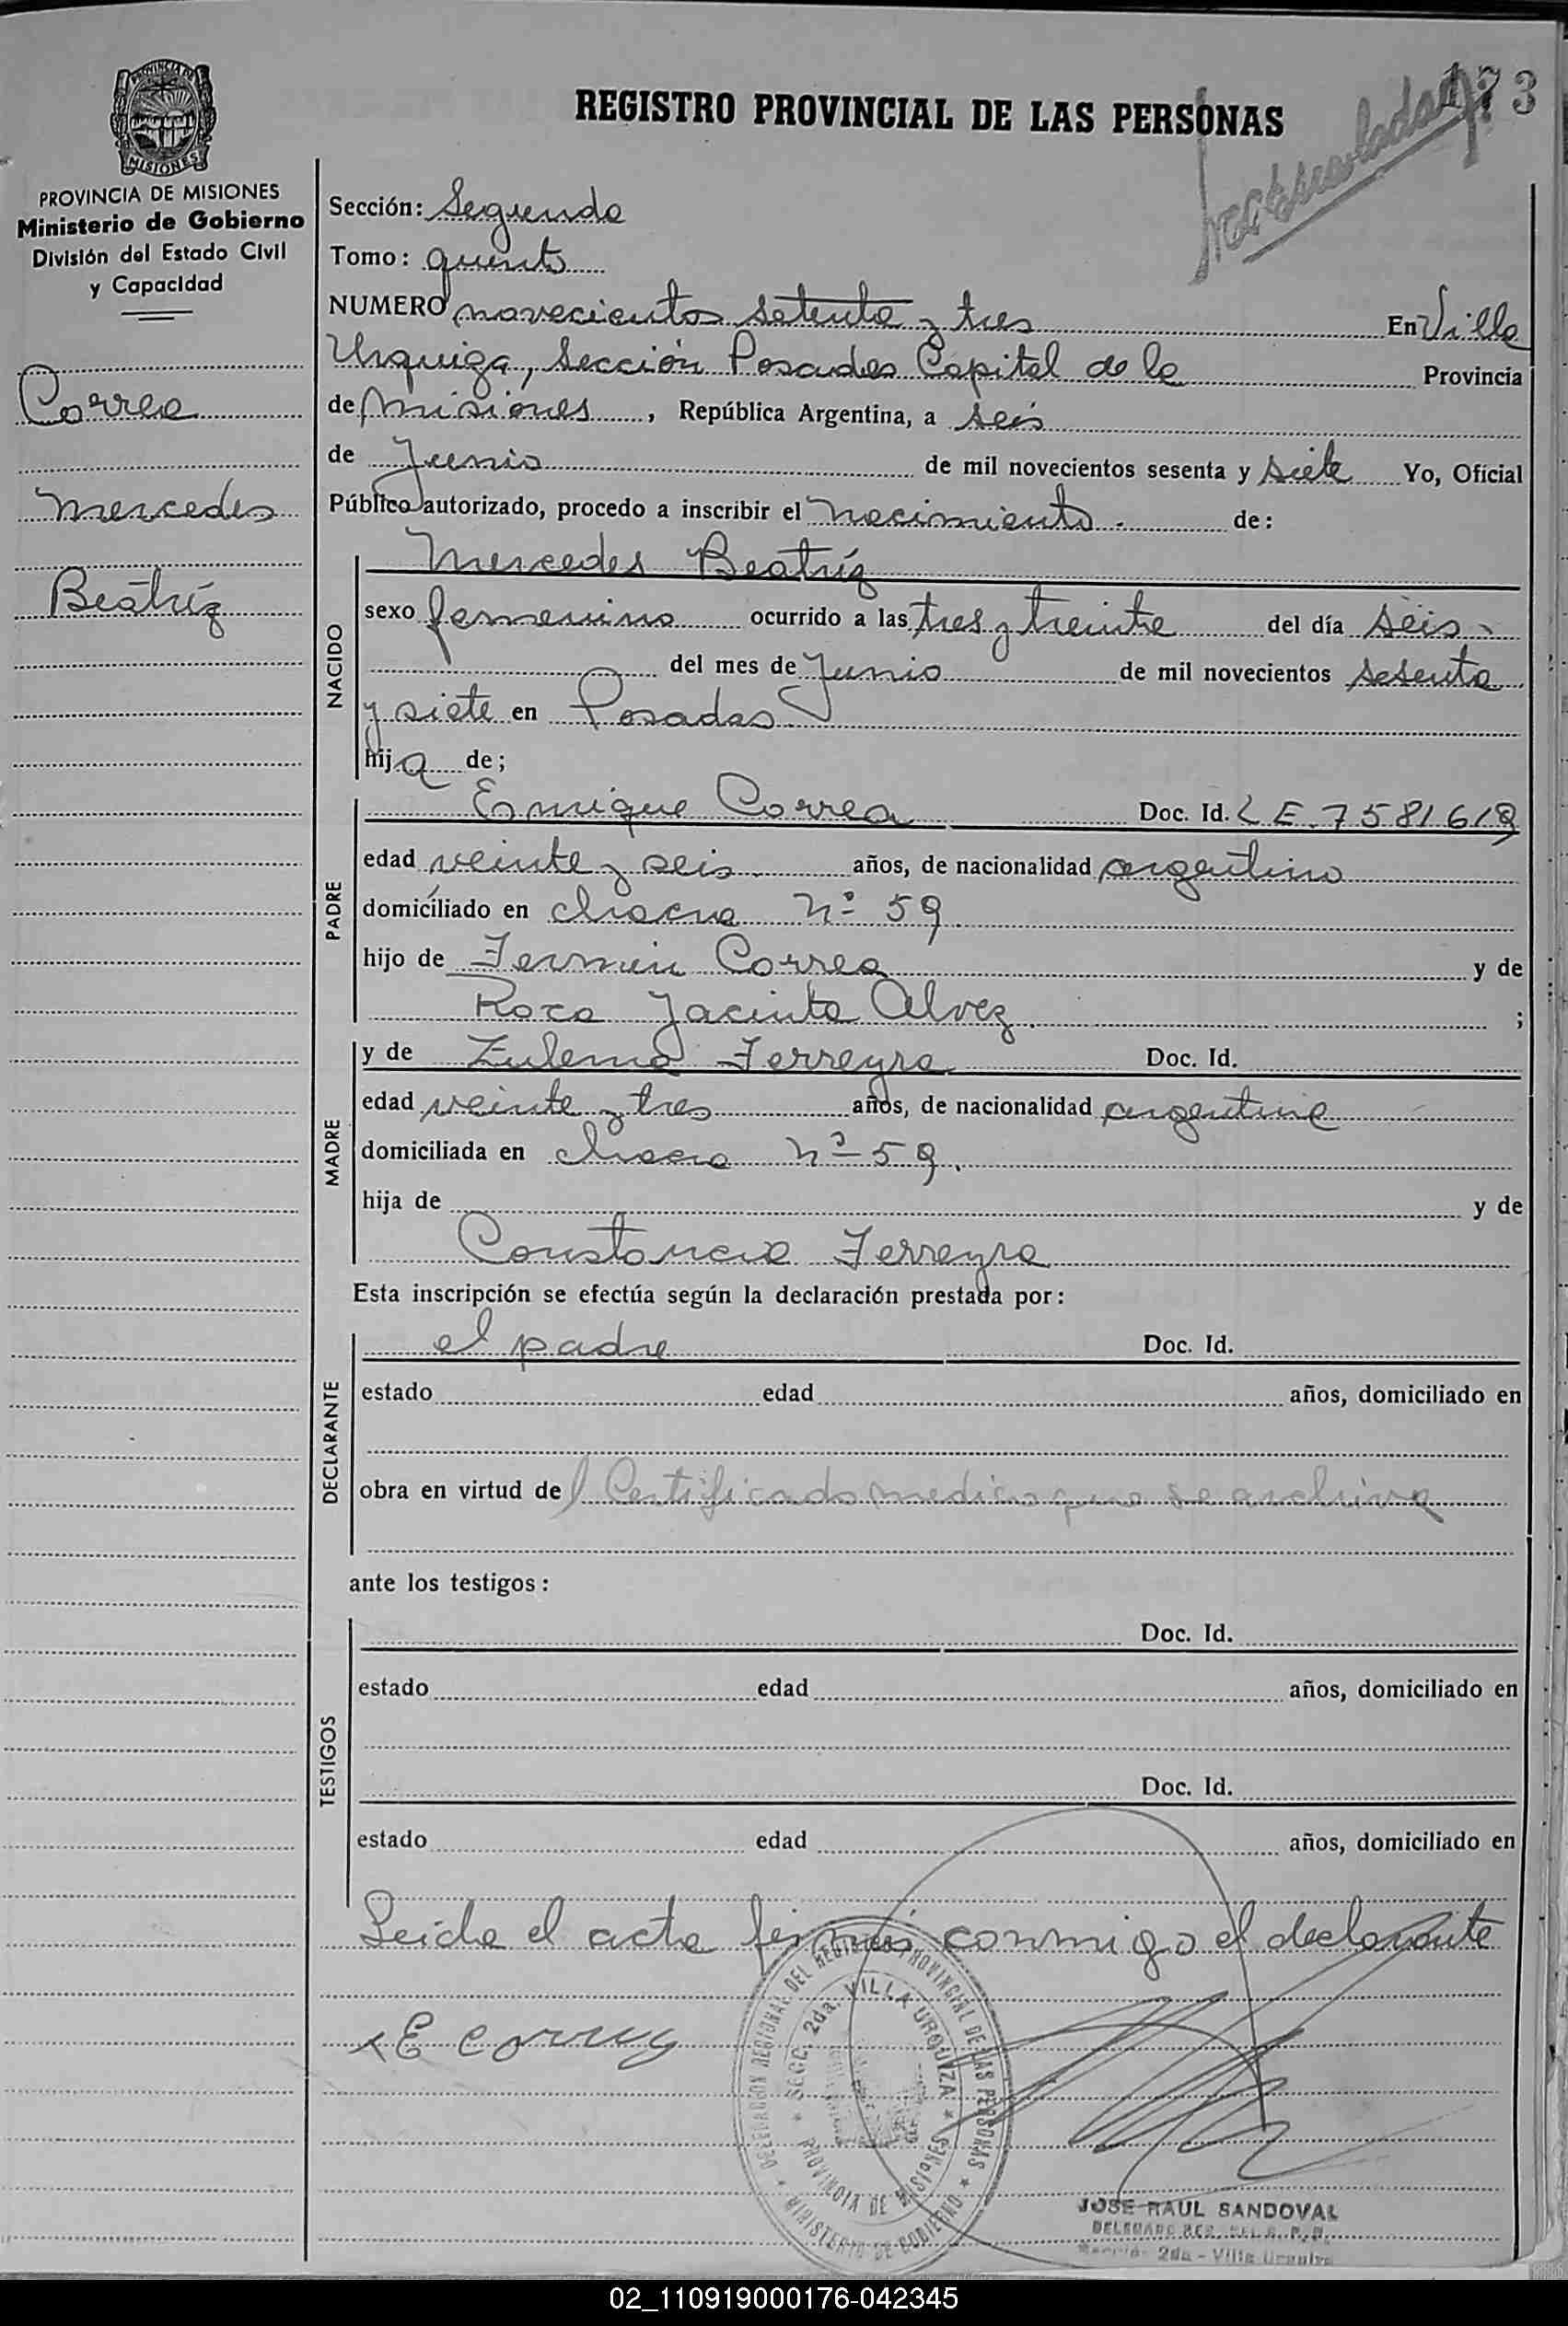 173
REGISTRO PROVINCIAL DE LAS PERSONAS
PROVINCIA DE MISIONES
PROVINCIA DE MISIONES
Ministerio de Gobierno
División del Estado Civil
y Capacidad
Correa
Mercedes
Beatríz
Sección: Segunda
Tomo: quinto
NUMERO novecientos setenta y tres En Villa
Urquiza, Sección Posadas Capital de la Provincia
de Misiones, República Argentina, a seis
de Junio de mil novecientos sesenta y siete Yo, Oficial
Público autorizado, procedo a inscribir el nacimiento. de:
NACIDO
Mercedes Beatríz
sexo femenino ocurrido a las tres y treinta del día seis
del mes de Junio de mil novecientos sesenta
y siete en Posadas.
hija de;
PADRE
Enrique Correa Doc. Id. L E. 7581619
edad veinte y seis. años, de nacionalidad argentino
domicíliado en chacra Nº 59.
hijo de Fermin Correa y de
Rosa Jacinta Alvez. ;
MADRE
y de Zulema Ferreyra Doc. Id.
edad veinte y tres años, de nacionalidad argentina
domiciliada en chacra Nº 59.
hija de y de
Constancia Ferreyra
Esta inscripción se efectúa según la declaración prestada por:
DECLARANTE
el padre Doc. Id.
estado edad años, domiciliado en
obra en virtud del Certificado medico que se archiva
ante los testigos:
TESTIGOS
Doc. Id.
estado edad años, domiciliado en
Doc. Id.
estado edad años, domiciliado en
Leida el acta firma conmigo el declarante
E Correa
DELEGACION REGIONAL DEL REGISTRO PROVINCIAL DE LAS PERSONAS
SECC. 2da. VILLA URQUIZA
PROVINCIA DE MISIONES
MINISTERIO DE GOBIERNO
JOSE RAUL SANDOVAL
DELEGADO REG. DEL R. P. P.
Sección 2da - Villa Urquiza
02_110919000176-042345